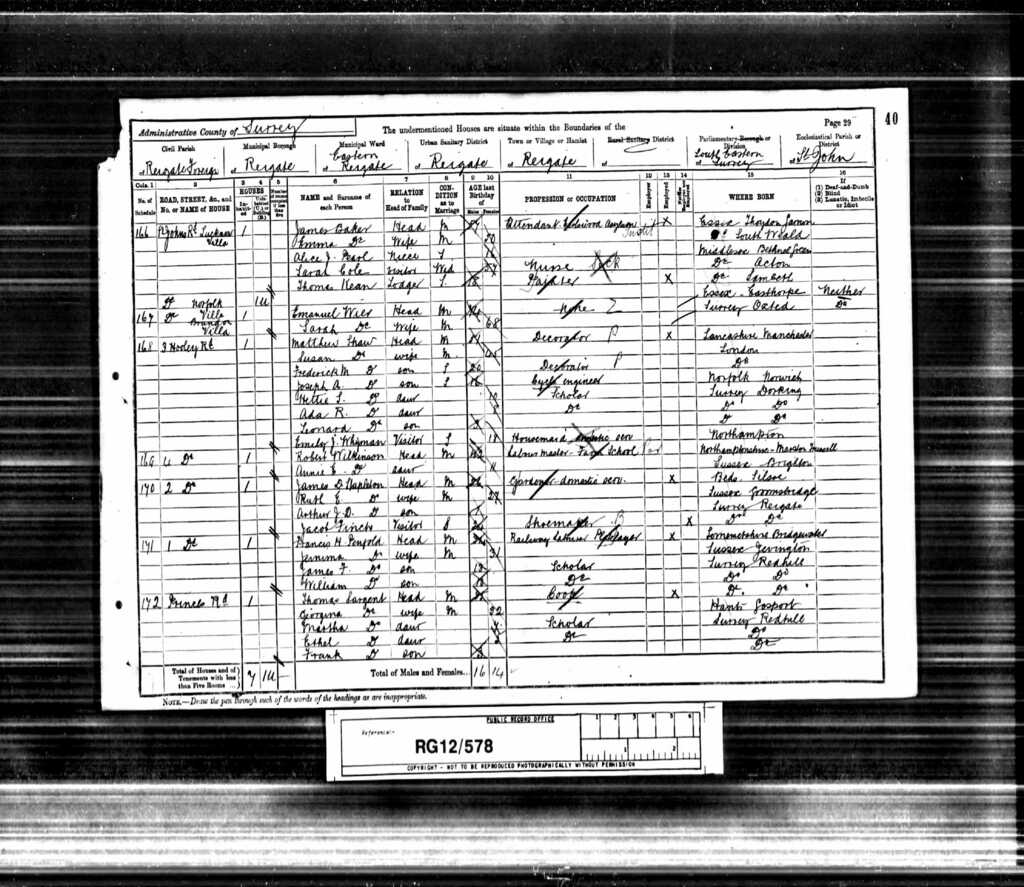 40
Page 29
Administrative County of Surrey
The undermentioned Houses are situate within the Boundaries of the
Civil Parish
Municipal Borough
Municipal Ward
Urban Sanitary District
Town or Village or Hamlet
Rural Sanitary District
Parliamentary Borough or Division
Ecclesiastical Parish or District
Reigate Foreign
Reigate
Eastern Reigate
Reigate
Reigate
South Eastern Surrey
St John
Cols. 1 2 3 4 5 6 7 8 9 10 11 12 13 14 15 16
No. of Schedule
ROAD, STREET, &c., and No. or NAME of HOUSE
HOUSES
NAME and Surname of each Person
RELATION to Head of Family
CONDITION as to Marriage
AGE last Birthday of
Males Females
PROFESSION or OCCUPATION
Employer
Employed
WHERE BORN
If (1) Deaf-and-Dumb (2) Blind (3) Lunatic, Imbecile or Idiot
166 St Johns Rd Villa 1 James Head M Attendant Asylum X Essex
Emma Do Wife M 30 South Weald
Alice J. Niece Middlesex Bethnal Green
Sarah Cole Visitor Wid Nurse Do Acton
Thomas Kean Lodger S 18 Painter X Do Lambeth
Do Norfolk Villa 1U
167 Do Brandon Villa 1 Emanuel Wier Head M None Essex Easthorpe Neither
Sarah Do Wife M 68 Surrey Oxted Do
168 3 Hooley Rd 1 Matthew Shaw Head M Decorator X Lancashire Manchester
Susan Do wife M London
Frederick M Do son S 20 Decorator Do
Joseph A. Do son S 16 engineer Norfolk Norwich
Hettie Do daur Scholar Surrey Dorking
Ada R. Do daur Do Do Do
Leonard Do son Do Do
Emily J. Visitor S 18 Housemaid domestic serv Northampton
169 4 Do 1 Robert Wilkinson Head M Labour master Farm School Northamptonshire Marston
Annie E. Do daur 11 Sussex Brighton
170 2 Do 1 James D. Napleton Head M 26 Gardener domestic serv. X Beds. Silsoe
Ruth E. Do wife M 27 Sussex Groombridge
Arthur J. D. Do son Surrey Reigate
Jacob Finch Visitor S Shoemaker X Do Do
171 1 Do 1 Francis H. Penfold Head M Railway Labourer Platelayer X Somersetshire Bridgwater
Jemima Do wife M 31 Sussex Jevington
James F. Do son Scholar Surrey Redhill
William Do son Do Do Do
172 Princes Rd 1 Thomas Sargent Head M X Do Do
Georgina Do wife M 32 Hants Gosport
Martha Do daur Scholar Surrey Redhill
Ethel Do daur Do Do
Frank Do son Do
Total of Houses and of Tenements with less than Five Rooms 7 1U
Total of Males and Females... 16 14
NOTE.—Draw the pen through such of the words of the headings as are inappropriate.
PUBLIC RECORD OFFICE
Reference:-
1 2 3 4 5 6
1 2
RG12/578
COPYRIGHT - NOT TO BE REPRODUCED PHOTOGRAPHICALLY WITHOUT PERMISSION